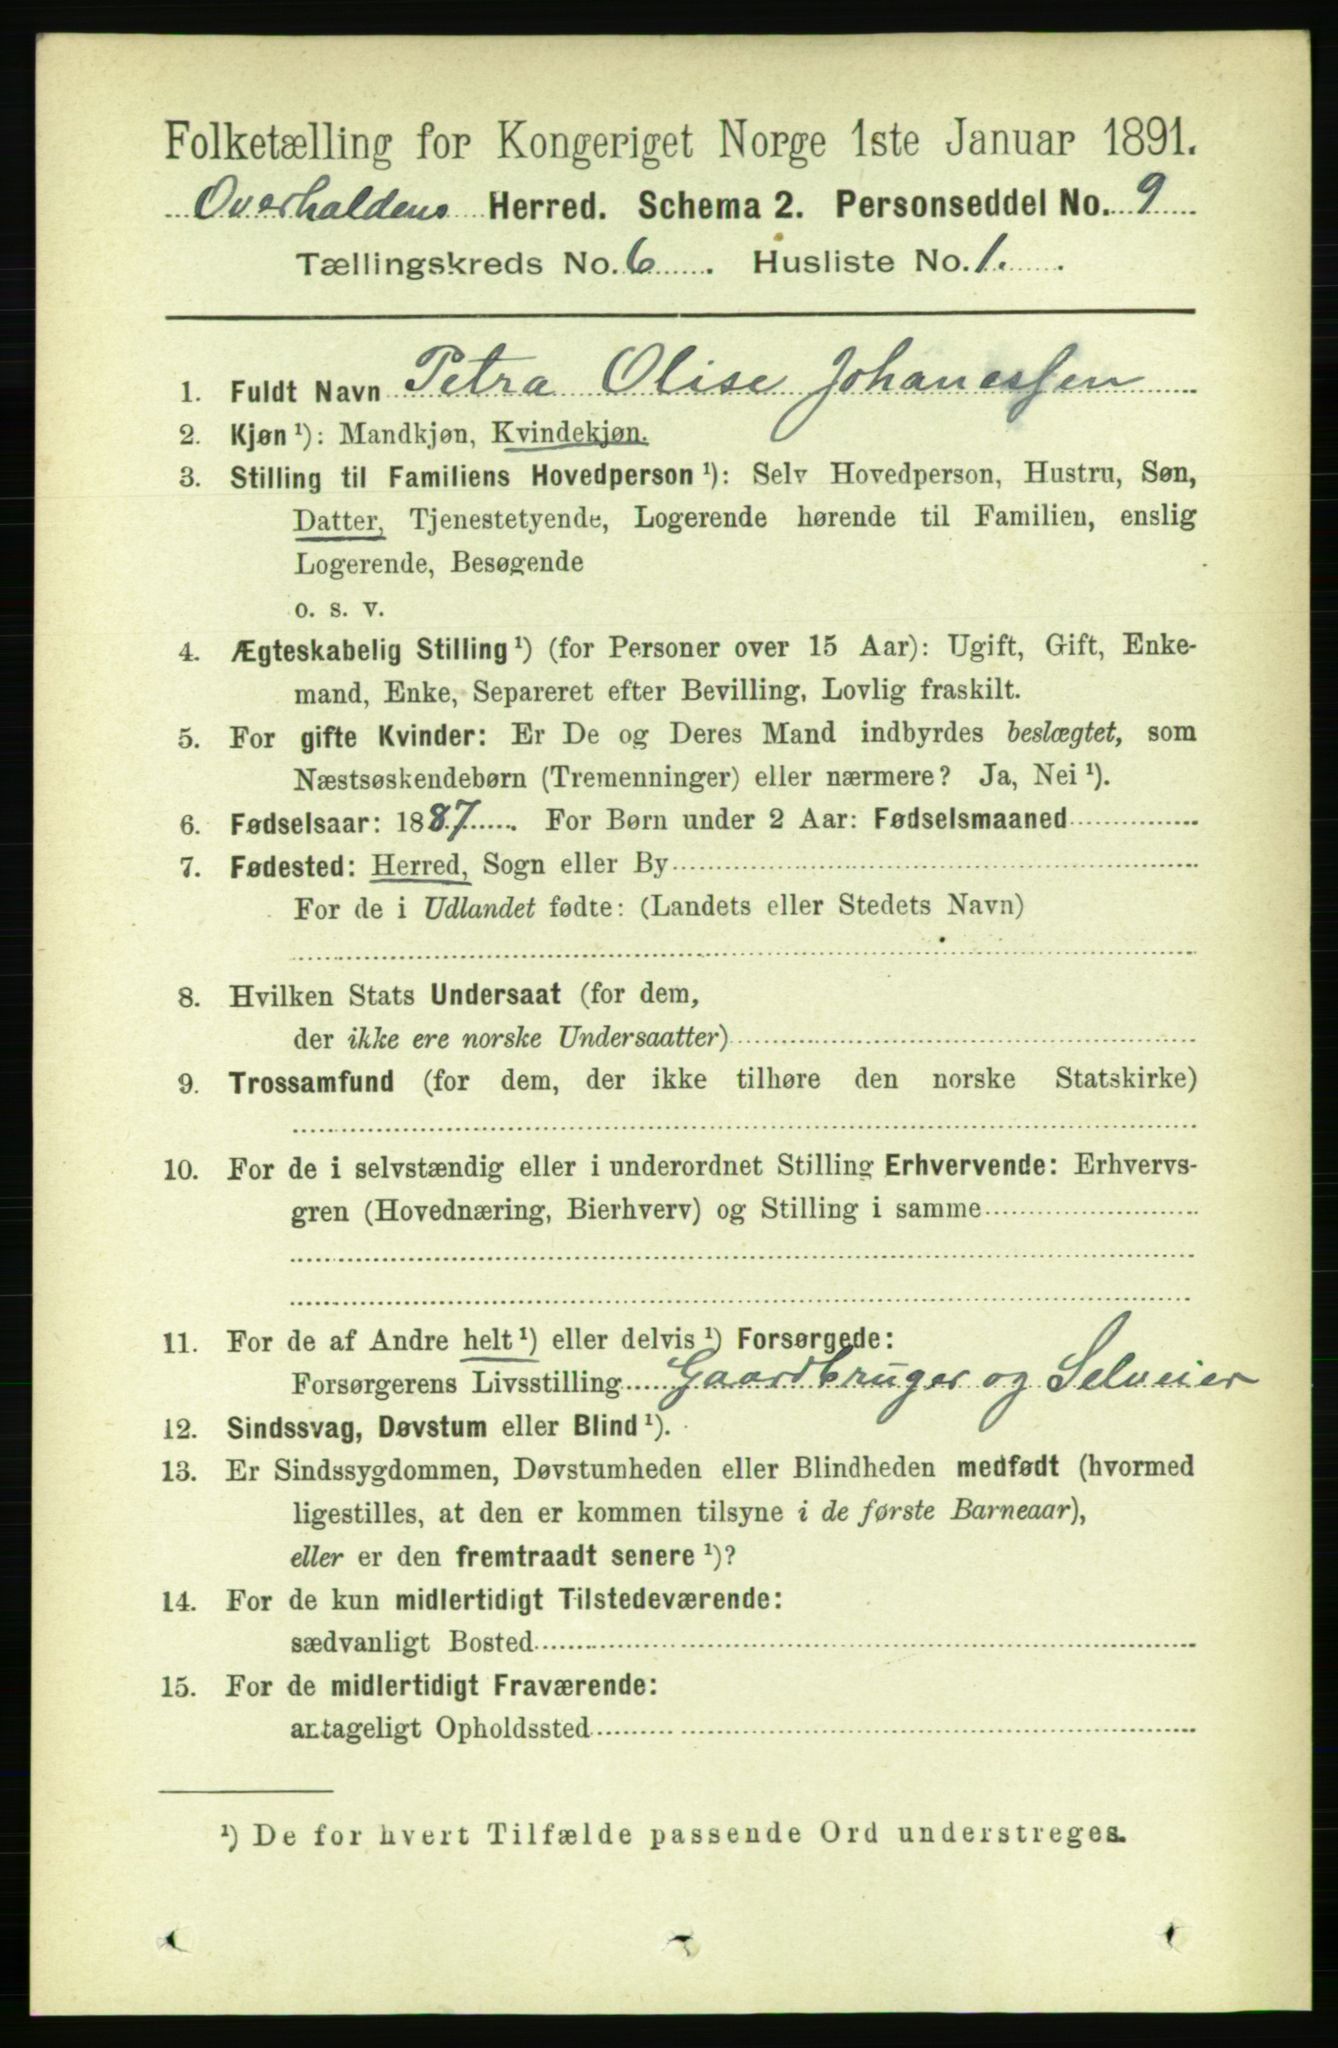 Folketælling for Kongeriget Norge 1ste Januar 1891.
Overhaldens Herred. Schema 2. Personseddel No. 9
Tællingskreds No. 6 . Husliste No. 1. .
1. Fuldt Navn Petra Olise Johanessen
2. Kjøn ¹): Mandkjøn, Kvindekjøn.
3. Stilling til Familiens Hovedperson ¹): Selv Hovedperson, Hustru, Søn,
Datter, Tjenestetyende, Logerende hørende til Familien, enslig
Logerende, Besøgende
o. s. v.
4. Ægteskabelig Stilling ¹) (for Personer over 15 Aar): Ugift, Gift, Enke-
mand, Enke, Separeret efter Bevilling, Lovlig fraskilt.
5. For gifte Kvinder: Er De og Deres Mand indbyrdes beslægtet, som
Næstsøskendebørn (Tremenninger) eller nærmere? Ja, Nei ¹).
6. Fødselsaar: 1887. For Børn under 2 Aar: Fødselsmaaned
7. Fødested: Herred, Sogn eller By
For de i Udlandet fødte: (Landets eller Stedets Navn)
8. Hvilken Stats Undersaat (for dem,
der ikke ere norske Undersaatter)
9. Trossamfund (for dem, der ikke tilhøre den norske Statskirke)
10. For de i selvstændig eller i underordnet Stilling Erhvervende: Erhvervs-
gren (Hovednæring, Bierhverv) og Stilling i samme
11. For de af Andre helt ¹) eller delvis ¹) Forsørgede:
Forsørgerens Livsstilling Gaardbruger og Selveier
12. Sindssvag, Døvstum eller Blind ¹).
13. Er Sindssygdommen, Døvstumheden eller Blindheden medfødt (hvormed
ligestilles, at den er kommen tilsyne i de første Barneaar),
eller er den fremtraadt senere ¹)?
14. For de kun midlertidigt Tilstedeværende:
sædvanligt Bosted
15. For de midlertidigt Fraværende:
antageligt Opholdssted
¹) De for hvert Tilfælde passende Ord understreges.